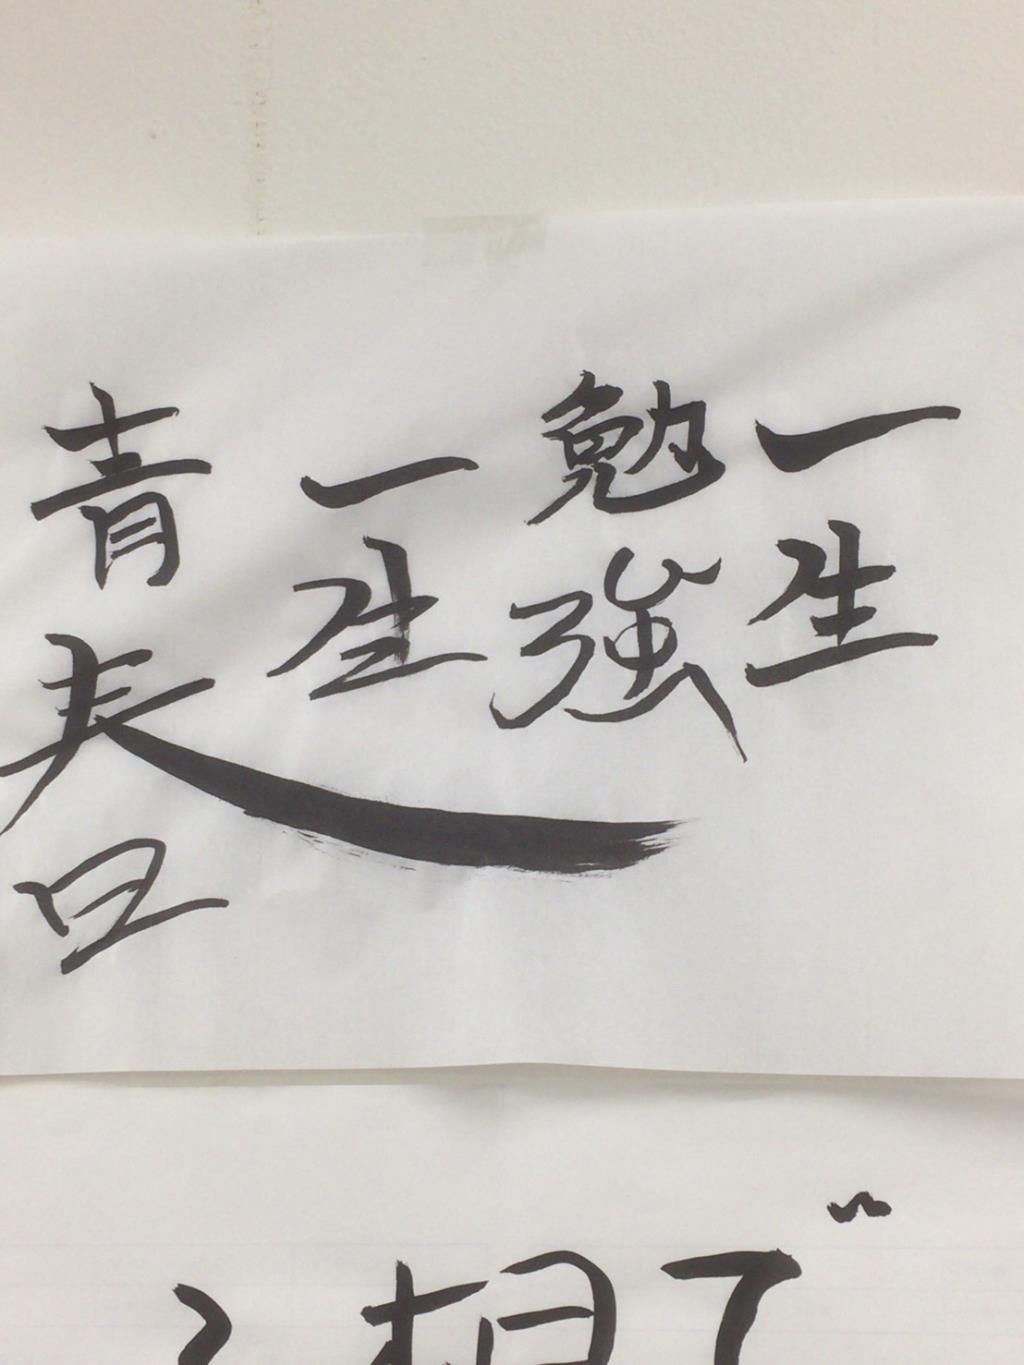 一生
勉強
一生
青春